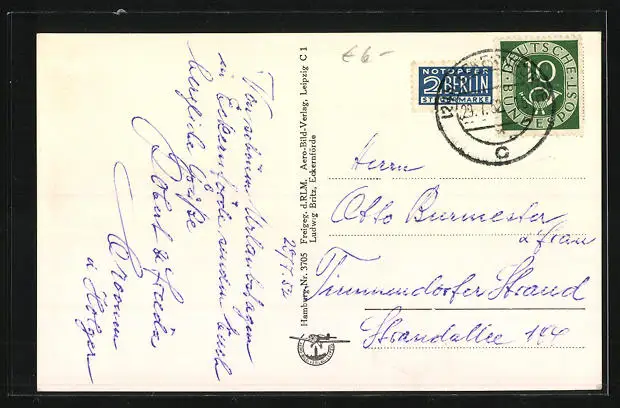 Von schönen Urlaubstagen
in Eckernförde senden Euch
herzliche Grüße
Robert & Frieda
u Holger
29/7.52
Hamburg-Nr. 3705 Freigeg. d.RLM. Aero-Bild-Verlag, Leipzig C 1
Ludwig Britz, Eckernförde
€6-
NOTOPFER
2 BERLIN
STEUERMARKE
DEUTSCHE
BUNDESPOST
10
c
Herrn
Otto Burmester
u Frau
Timmendorfer Strand
Strandallee 144